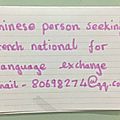 hinese person seeking
rench national for
language exchange
mail - 80698274@qq.co